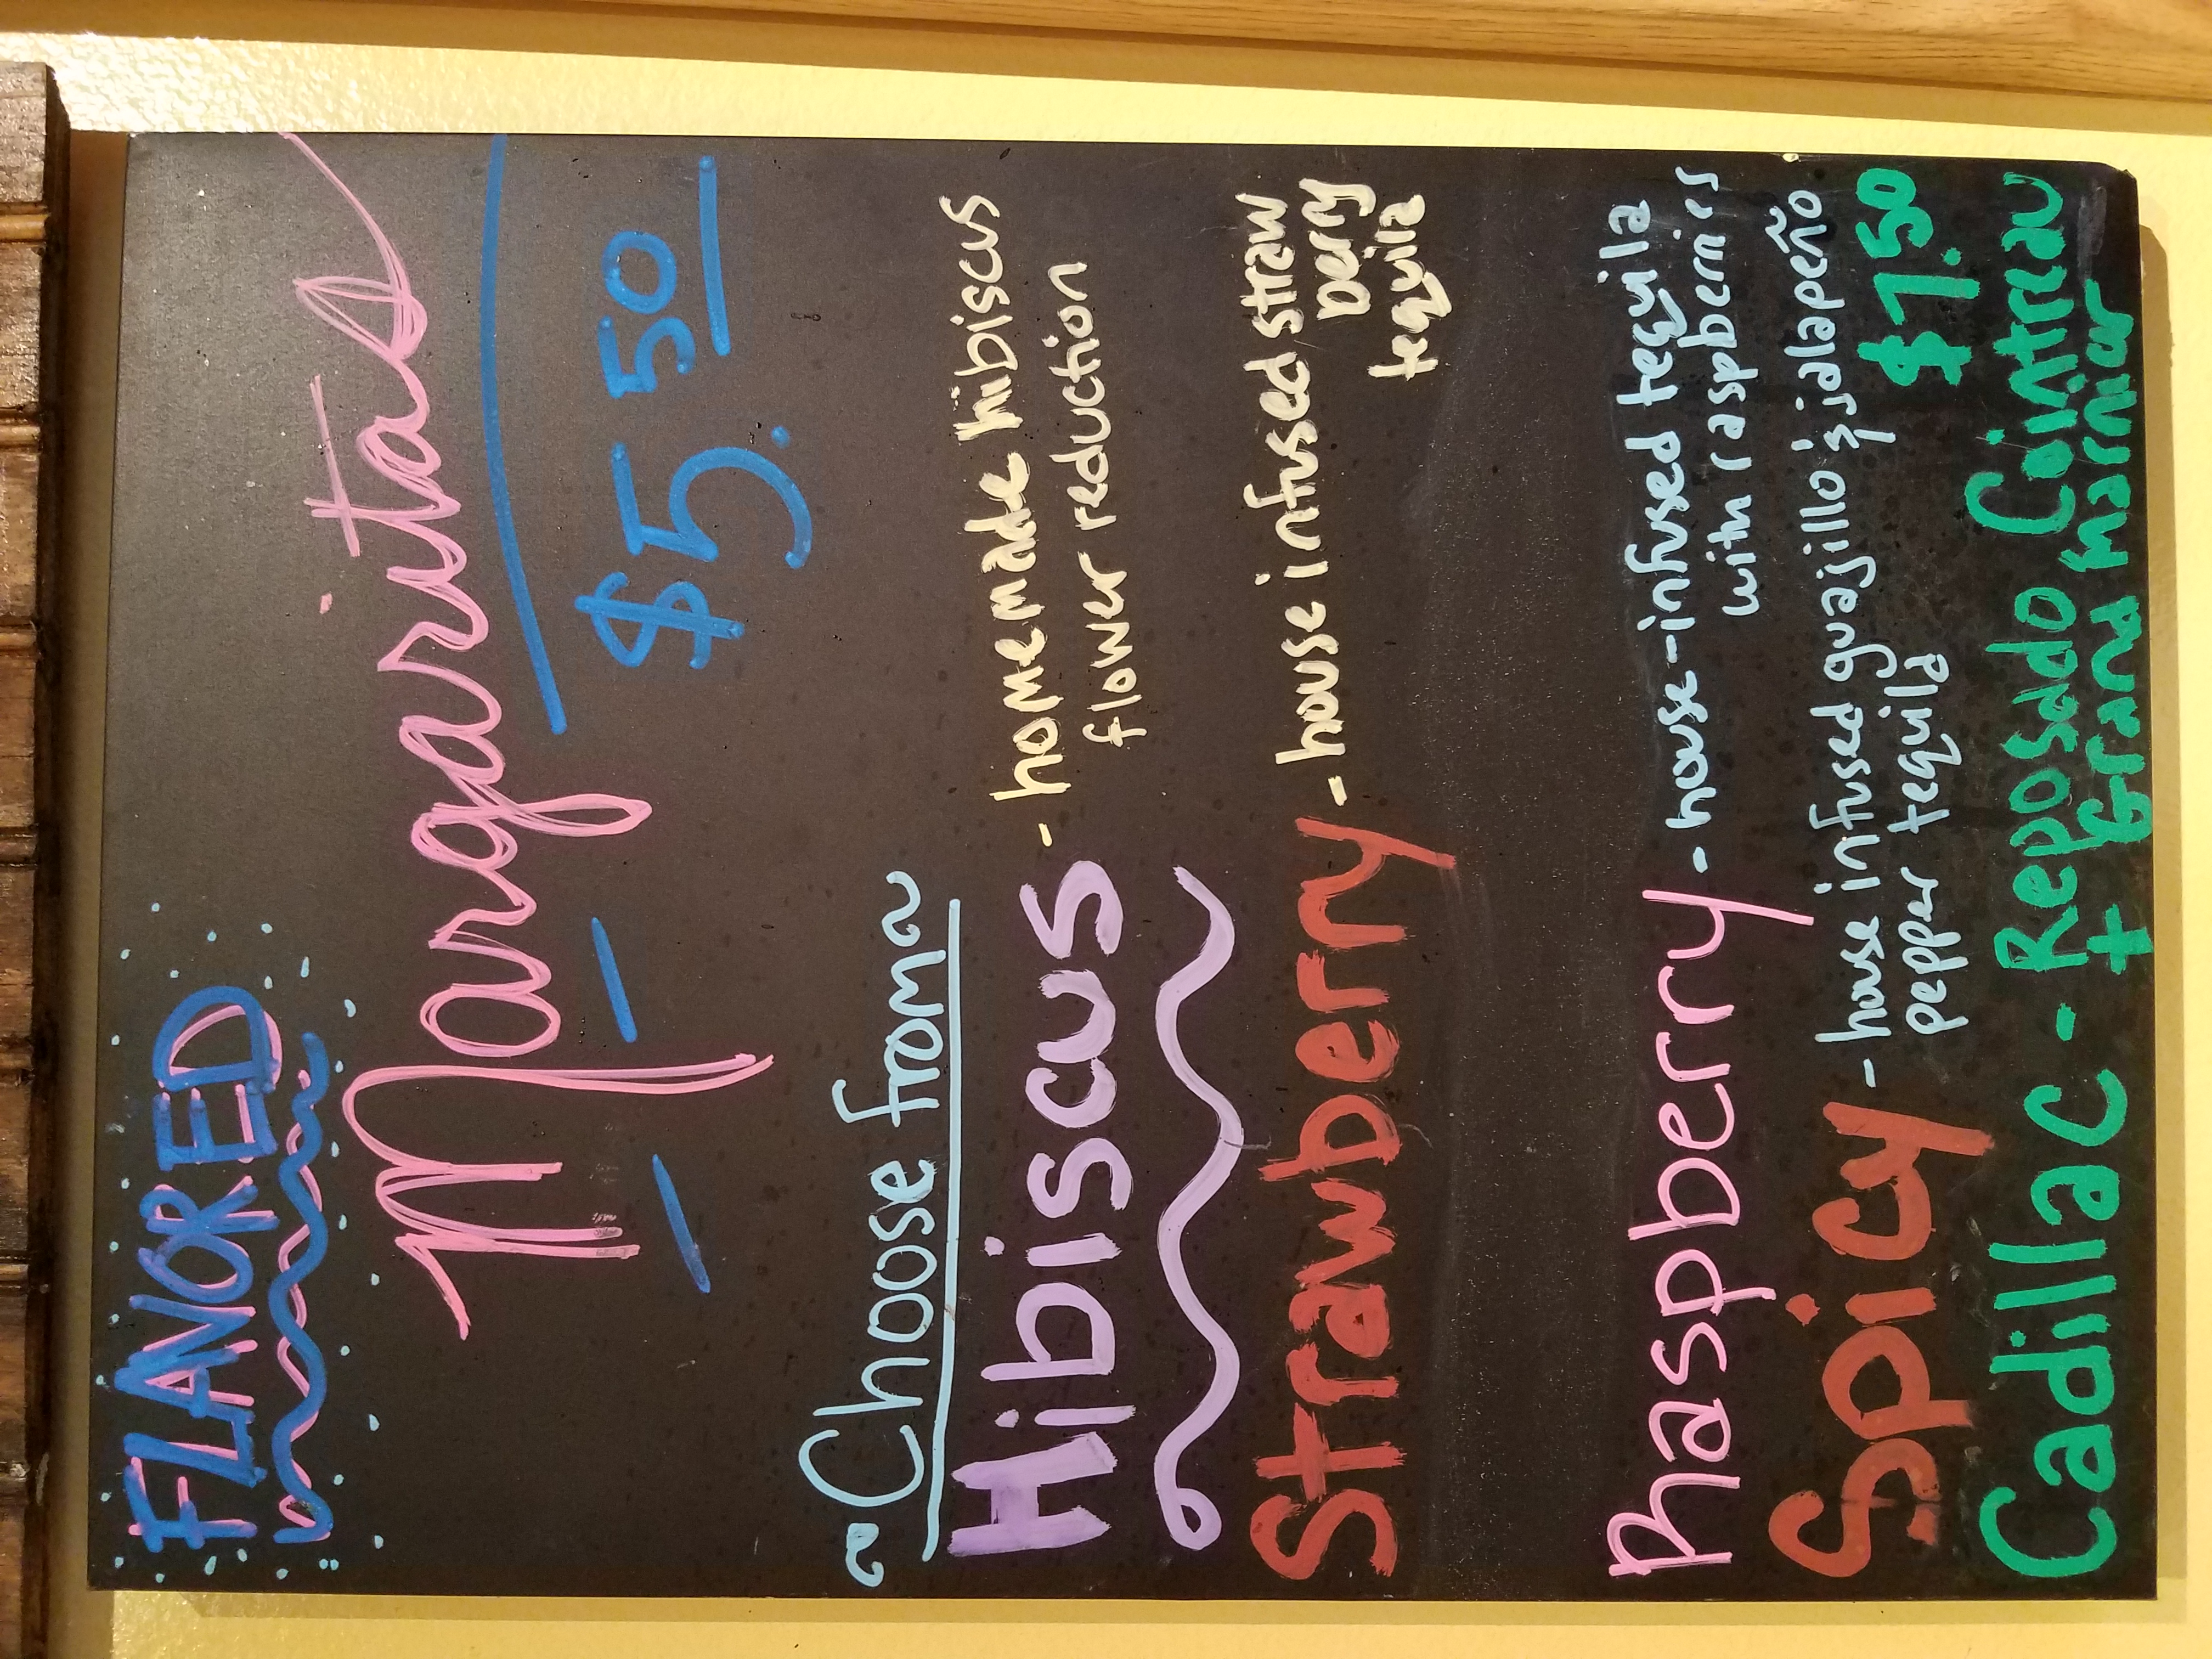 FLAVORED
Margaritas
$5.50
~Choose from~
Hibiscus - homemade hibiscus
flower reduction
Strawberry - house infused straw
berry
tequila
Raspberry - house-infused tequila
with raspberries
Spicy - house infused guajillo & jalapeño
pepper tequila
$7.50
Cadillac - Reposado, Cointreau
+ Grand Marnier